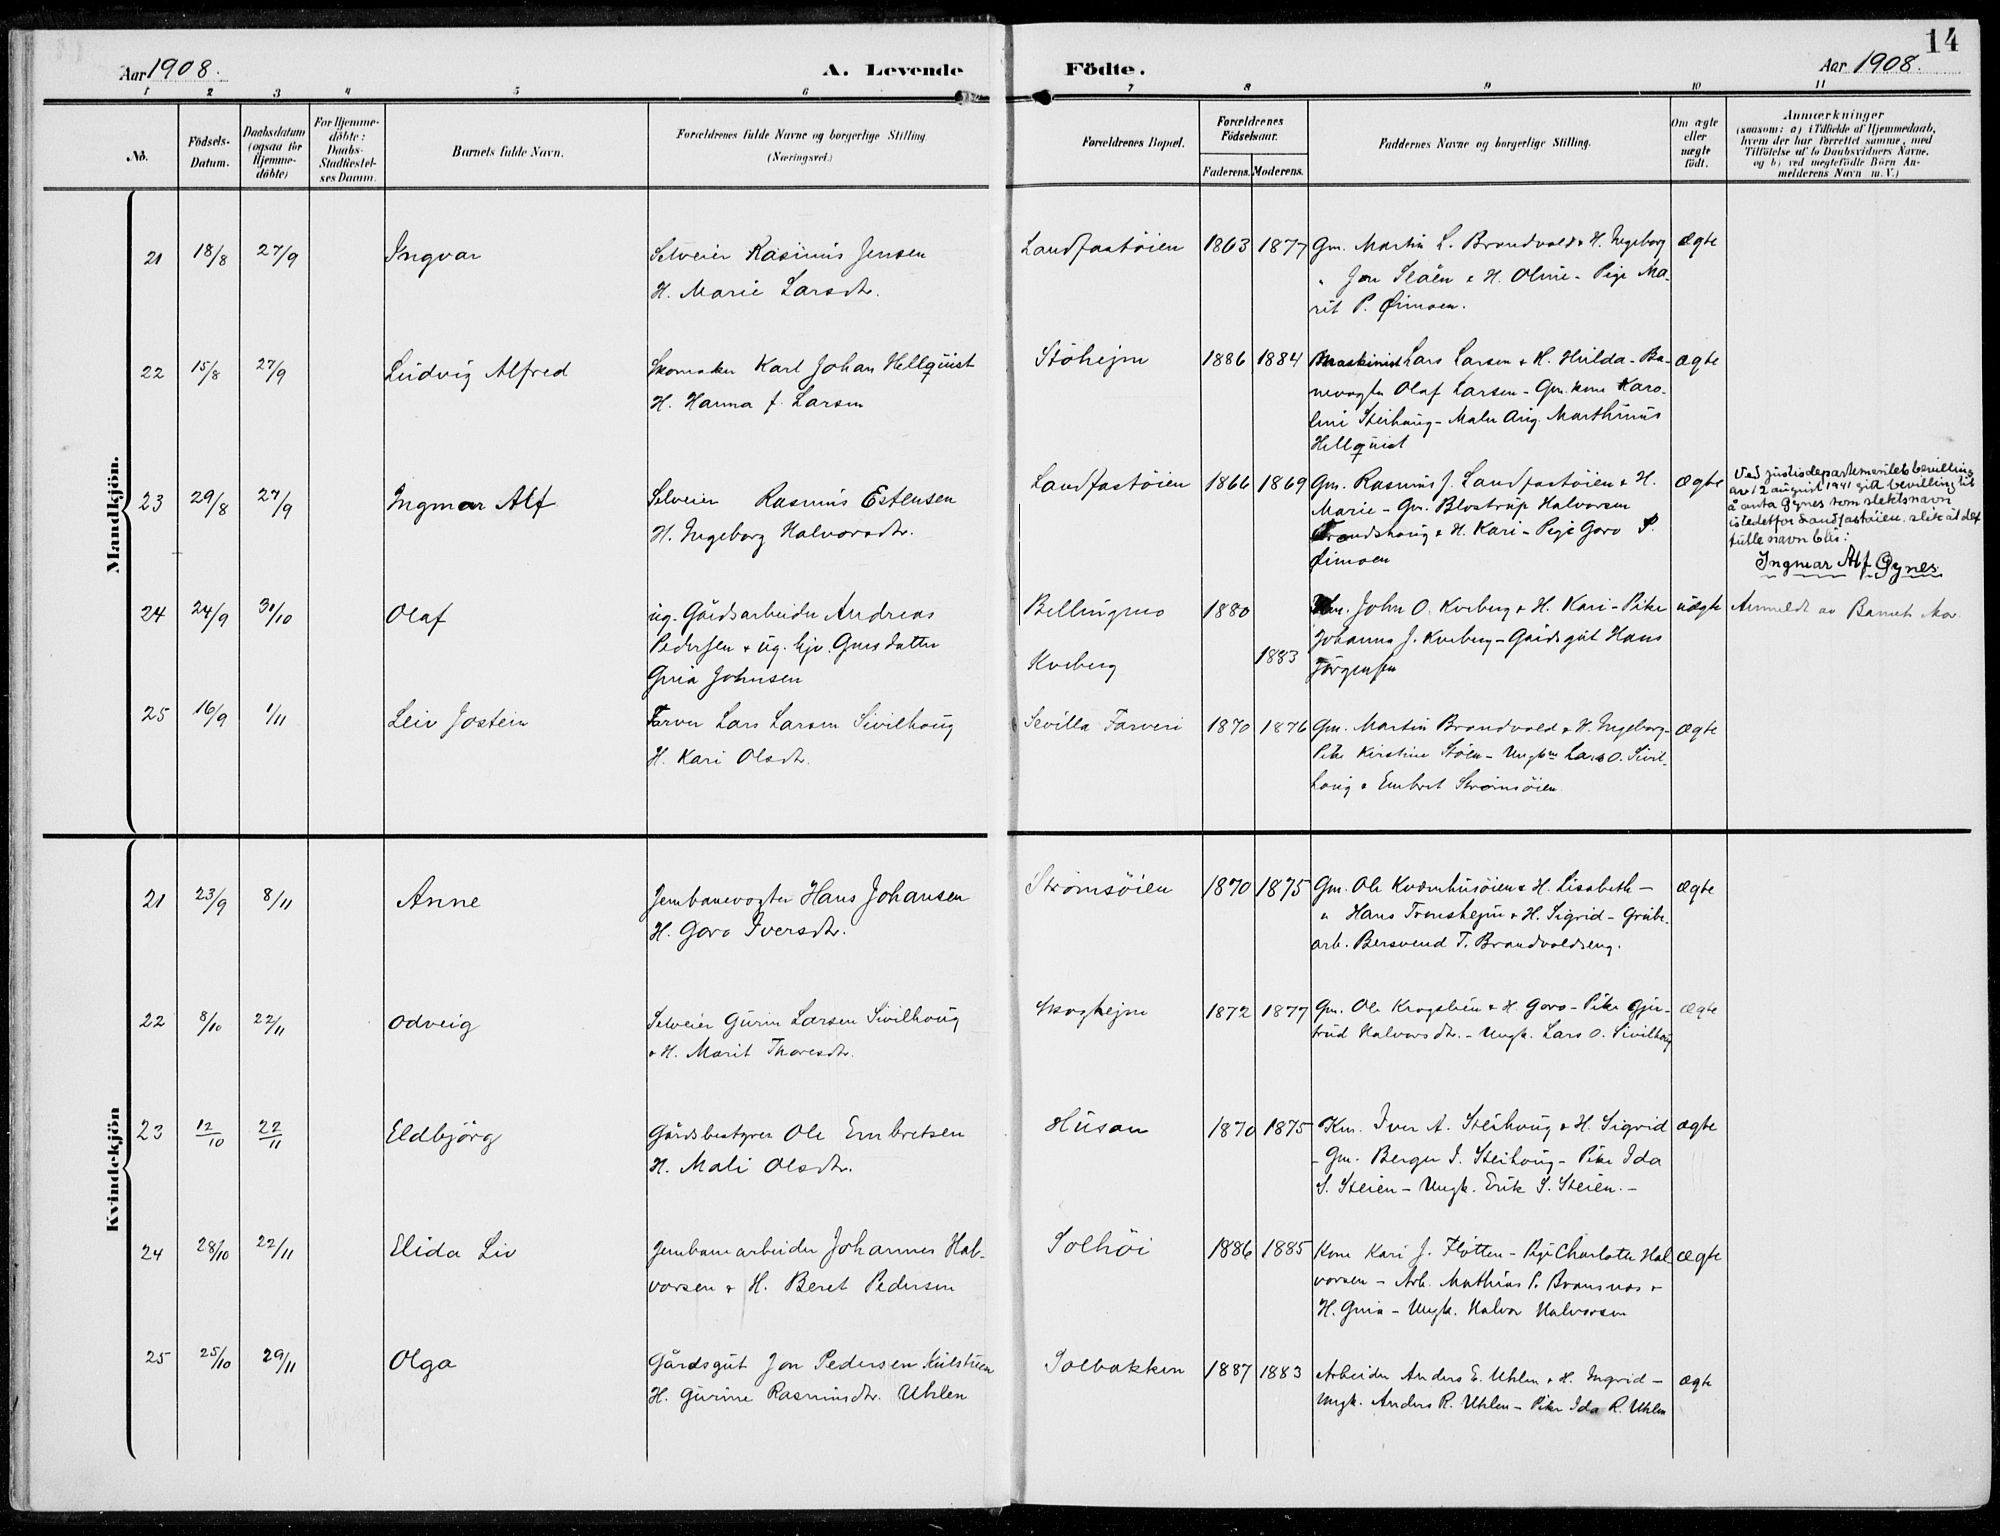 14
Aar 1908.
A. Levende Födte.
Aar 1908.
1 2 3 4 5 6 7 8 9 10 11
No.
Födsels-
Datum.
Daabsdatum
(ogsaa for
Hjemme-
döbte)
For Hjemme-
döbte:
Daabs-
Stadfæstel-
ses Datum.
Barnets fulde Navn.
Forældrenes fulde Navne og borgerlige Stilling.
(Næringsvei.)
Forældrenes Bopæl.
Forældrenes
Födselsaar.
Faderens. Moderens.
Faddernes Navne og borgerlige Stilling.
Om ægte
eller
uægte
födt.
Anmærkninger
(saasom: a) i Tilfælde af Hjemmedaab,
hvem der har forrettet samme, med
Tilföielse af to Daabsvidners Navne,
og b) ved uegtefödte Börn An-
melderens Navn m. V.)
Mandkjön.
21 18/8 27/9 Ingvar
Selveier Rasmus Jensen
H. Marie Larsdtr.
Landfastøien 1863 1877
Gm. Martin L. Brandvold & H. Ingeborg
" Jon Slåen & H. Oline - Pige Ma-
rit P. Øimoen.
ægte
22 15/8 27/9 Ludvig Alfred
Skomaker Karl Johan Hellquist
H. Hanna f. Larsen
Støhejm 1886 1884
Maskinist Lars Larsen & H. Hilda - Ba-
nevogter Olaf Larsen - Gm. kone Karo-
line Steihaug - Maler Aug. Marthinus
Hellquist
ægte
23 29/8 27/9 Ingmar Alf
Selveier Rasmus Estensen
H. Ingeborg Halvorsdtr.
Landfastøien 1866 1869
Gm. Rasmus J. Landfastøien & H.
Marie - Gm. Blostrup Halvorsen
Trondshaug & H. Kari - Pige Goro P.
Øimoen
ægte
Ved justisdepartementets bevilling
av 12 august 1941 gitt bevilling til
å anta Gynes som slektsnavn
istedetfor Landfastøien, slik at det
fulle navn blir:
Ingmar Alf Gynes
24 24/9 31/10 Olaf
ug. Gårdsarbeider Andreas
Pedersen & ug. hjv. Gmsdatter
Guria Johnsen
Bellingmo 1880
Kveberg 1883
Gm. John O. Kveberg & H. Kari - Pike
Johanna J. Kveberg - Gårdsgut Hans
Jørgensen
uægte
Anmeldt av Barnets Mor.
25 16/9 1/11 Leiv Jostein
Farver Lars Larsen Sivilhaug
H. Kari Olsdtr.
Sevilla Farveri 1870 1876
Gm. Martin Brandvold & H. Ingeborg-
Pike Kirstine Støen - Ungkm Lars O. Sivil-
haug & Embret Strømsøien
ægte
Kvindekjön
21 23/9 8/11 Anne
Jernbanevogter Hans Johansen
H. Goro Iversdtr.
Strømsøien 1870 1875
Gm. Ole Kværnhusøien & H. Lisabeth -
" Hans Tronshejm & H. Sigrid - Grube-
arb. Bersvend T. Brandvoldseng.
ægte
22 8/10 22/11 Odveig
Selveier Gurin Larsen Sivilhaug
& H. Marit Thoresdtr.
Skoghejm 1872 1877
Gm. Ole Krogstien & H. Goro - Pike Gjer-
trud Halvorsdtr. - Ungk. Lars O. Sivilhaug
ægte
23 12/10 22/11 Eldbjørg
Gårdsbestyrer Ole Embretsen
H. Mali Olsdtr.
Husan 1870 1875
Km. Iver A. Steihaug & H. Sigrid
- Gm. Berger I. Steihaug - Pike Ida
S. Steien - Ungk. Erik S. Steien. -
ægte
24 28/10 22/11 Elida Liv
Jernbanearbeider Johannes Hal-
vorsen & H. Beret Pedersen
Solhøi 1886 1885
Kone Kari J. Fløtten - Pige Charlotte Hal-
vorsen - Arb. Mathias P. Bransnas &
H. Guria - Ungk. Halvor Halvorsen
ægte
25 25/10 29/11 Olga
Gårdsgut Jon Pedersen Kulstuen
H. Gurine Rasmusdtr. Uhlen
Solbakken 1887 1883
Arbeider Anders E. Uhlen & H. Ingrid -
Ungk. Anders R. Uhlen - Pike Ida R. Uhlen
ægte